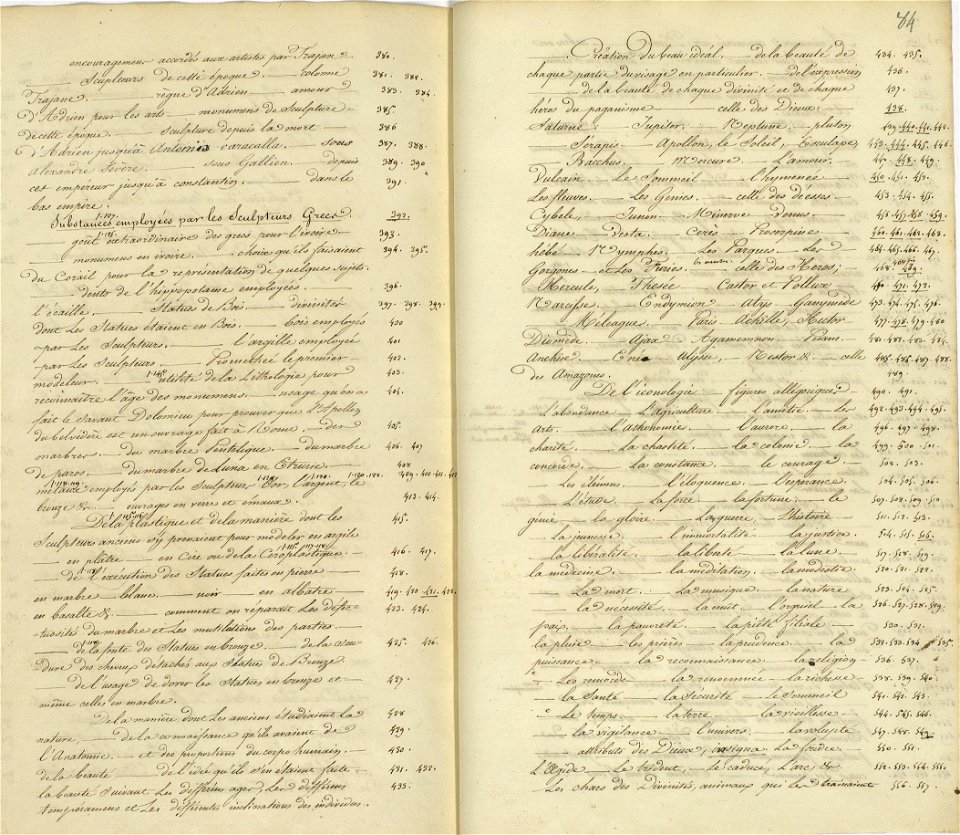 encouragemens accordés aux artistes par Trajan 380.
— Sculpteurs de cette époque — colonne 381. 382.
Trajane — règne d'Adrien — amour 383. 384.
d'Adrien pour les arts — monumens de Sculpture — 385.
de cette époque. — sculpture depuis la mort — 386
d'Adrien jusqu'à Antonin caracalla. — sous 387. 388.
Alexandre Sevère. — sous Gallien — depuis 389. 390
cet empereur jusqu'à constantin. — dans le 391.
bas empire.
Substances employées par les Sculpteurs Grecs. 392.
— goût extraordinaire des grecs pour l'ivoire — 393.
— monumens en ivoire. — choix qu'ils faisaient 394. 395.
du Corail pour la représentation de quelques sujets.
— dents de l'hippopotame employées. 396.
l'écaille. — Statues de Bois. — divinités 397. 398. 399.
dont les Statues étaient en Bois. — bois employés 400
par les Sculpteurs. — l'argille employée 401
par les Sculpteurs. — Promethée le premier 402.
modeleur. — utilité de la Lithologie pour 403.
reconnaitre l'âge des monumens. — usage qu'en a 404.
fait le Savant Dolomieu pour prouver que l'Apollon
du belvédère est un ouvrage fait à Rome. — des 405.
marbres. — du marbre Penthélique — du marbre 406. 407
de paros. — du marbre de Luna en Etrurie. — 408
métaux employés par les Sculpteurs L'or, l'argent, le 409. 410. 411. 412
bronze &c — ouvrages en verre et émaux. 413. 414.
De la plastique et de la manière dont les 415.
Sculpteurs anciens s'y prenaient pour modeler en argile
— en plâtre — en Cire ou de la Céroplastique. — 416. 417.
— de l'exécution des Statues faites en pierre — 418.
en marbre blanc — noir — en albatre 419. 420. 421. 422.
en basalte &c. — comment on reparait les défec- 423. 424.
-tuosités du marbre et les mutilations des parties.
— de la fonte des Statues en bronze. — de la sou- 425. 426.
dure des cheveux detachés aux Statues de Bronze
— de l'usage de dorer les Statues en bronze et — 427.
même celles en marbre.
De la manière dont les anciens étudiaient la 428
nature, — de la connaissance qu'ils avaient de 429.
l'Anatomie. — et des proportions du corps humain. — 430.
de la beauté — de l'idée qu'ils s'en étaient faite — 431. 432.
la beauté suivant les différens ages, les différens 433.
temperamens et les différentes inclinations des individus.
84
— Création du beau idéal. — de la beauté de 434. 435.
chaque partie du visage en particulier. — de l'expression 436.
— de la beauté de chaque divinité et de chaque 437.
héros du paganisme — celle des Dieux: — 438.
Saturne: — Jupiter. Neptune. pluton 439. 440. 441. 442.
— Serapis — Apollon, le Soleil, Esculape, 443. 444. 445. 446
— Bacchus. — Mercure. L'amour. 447. 448. 449.
Vulcain. — Le Sommeil — l'hymenée 450. 451. 452.
Les fleuves. — Les Génies. — celle des déesses. 453. 454. 455.
Cybele, — Junon — Minerve — Venus.
Diane — Vesta. — Cerès — Proserpine 460. 461. 462. 463.
hébé — Nymphes. — Les Parques — Les 464. 465. 466. 467.
Gorgones — et les Furies. — celle des Heros;
Hercule, — Thesée — Castor et Pollux 470. 471. 472.
Narcisse. — Endymion — Atys — Ganymède 473. 474. 475. 476.
— Méléagre. — Paris — Achille, — Hector 477. 478. 479. 480
Diomède. — Ajax — Agamemnon. — Priam. 481. 482. 483. 484.
Anchise — Enée — Ulysse, — Nestor &. — celle 485. 486. 487. 488
des Amazones. 489.
De l'iconologie — figures allégoriques 490. 491.
L'abondance. — L'agriculture. — l'amitié. — les 492. 493. 494. 495.
arts. — l'astronomie. — l'aurore — la 496. 497. 498.
charité. — La chasteté. — la colonie — la 499. 500. 501.
concorde. — La constance. — le courage 502. 503.
— Les élémens. — l'éloquence. — l'espérance. 504. 505. 506.
— L'étude. — La force. — la fortune. — le 507. 508. 509. 510
génie — la gloire. — La guerre, — l'histoire 511. 512. 513.
— La jeunesse. — l'immortalité. — la justice. 514. 515. 516.
— la libéralité. — la liberté — la lune. — 517. 518. 519.
la médecine. — la méditation. — la modestie. 520. 521. 522.
— La mort. — La musique. — la nature 523. 524. 525.
— la necessité. — la nuit. — l'orgueil — la 526. 527. 528. 529.
paix. — la pauvreté. — la piété filiale — 530. 531.
la pluie — les prières — la prudence. — la 532. 533. 534. 535.
puissance. — la reconnaissance. — la religion — 536. 537.
— Les remords — la renommée — la richesse — 538. 539. 540.
— la Santé — la Sécurité — le Sommeil 541. 542. 543.
— Le temps. — la terre — la vieillesse. — 544. 545. 546.
— la vigilance — l'univers. — la volupté 547. 548. 549
— attributs des Dieux, insigna. La foudre. 550. 551.
L'Egide — le trident, — le caducé, L'arc, &c 552. 553. 554. 555.
Les chars des Divinités, animaux qui les trainaient 556. 557.